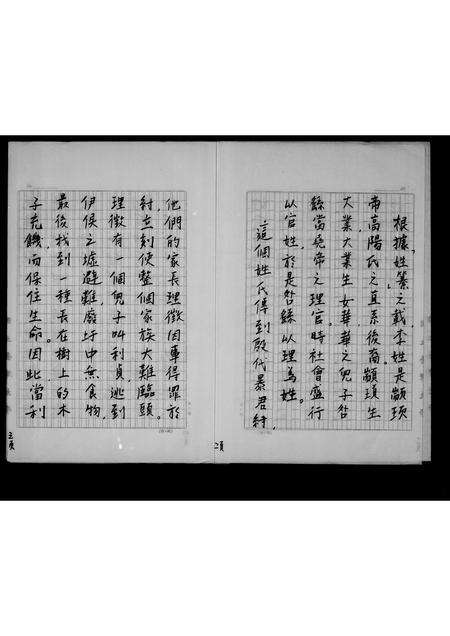 根據「姓纂」之載,李姓是顓頊
帝高陽氏之直系後裔。顓頊生
大業,大業生女華,華之兒子咎
繇當堯帝之理官,時社會盛行
以官姓,於是咎繇以理為姓。
這個姓氏得到殷代暴君紂,
他們的家長理徵因事得罪於
紂,立刻便整個家族大難臨頭。
理徵有一個兒子叫利貞,逃到
伊侯之墟避難,廢圩中無食物,
最後找到一種長在樹上的木
子充饑,而保住生命。因此當利
二頁
三頁